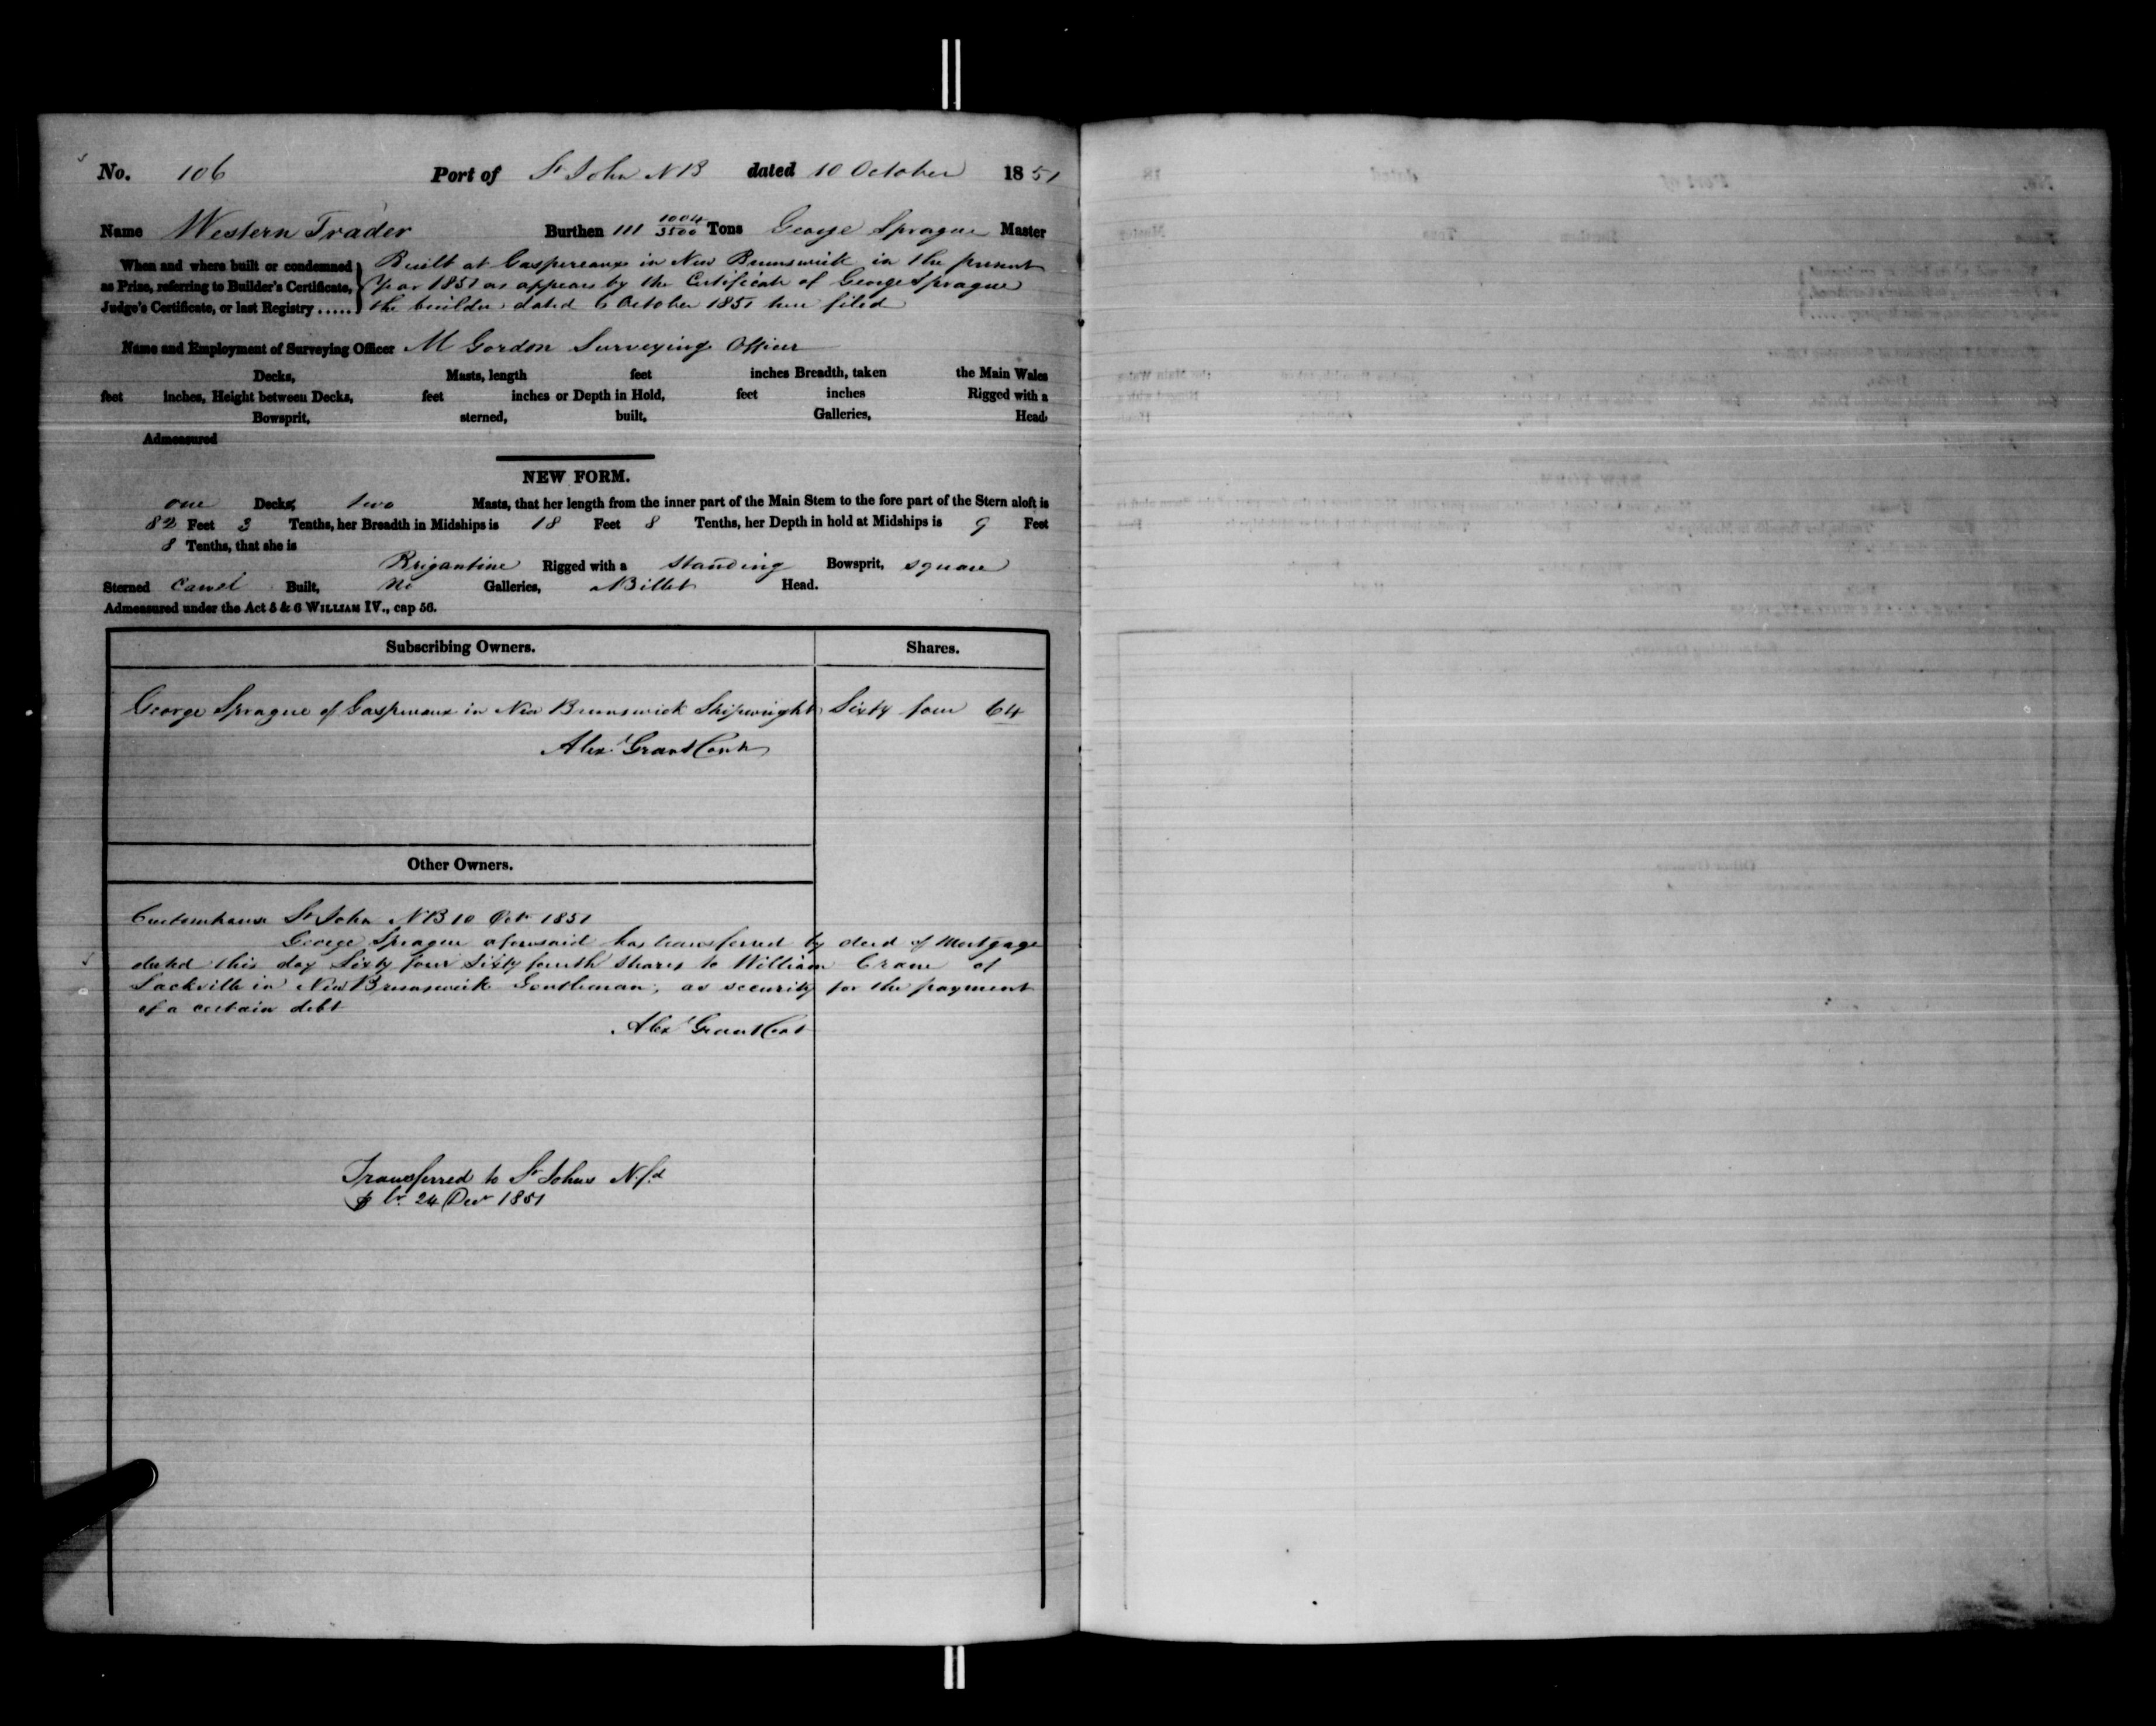 No. 106 Port of St John NB dated 10 October 1851
Name Western Trader Burthen 111 1004/3500 Tons George Sprague Master
When and where built or condemned as Prize, referring to Builder's Certificate, Judge's Certificate, or last Registry .....
Built at Gaspereaux in New Brunswick in the present
Year 1851 as appears by the Certificate of George Sprague
the builder dated 6 October 1851 here filed
Name and Employment of Surveying Officer M Gordon Surveying Officer
Decks, Masts, length feet inches Breadth, taken the Main Wales
feet inches, Height between Decks, feet inches or Depth in Hold, feet inches Rigged with a
Bowsprit, sterned, built, Galleries, Head
Admeasured
NEW FORM.
one Decks, two Masts, that her length from the inner part of the Main Stem to the fore part of the Stern aloft is
82 Feet 3 Tenths, her Breadth in Midships is 18 Feet 8 Tenths, her Depth in hold at Midships is 9 Feet
8 Tenths, that she is
Brigantine Rigged with a standing Bowsprit, square
Sterned Carvel Built, No Galleries, Billet Head.
Admeasured under the Act 5 & 6 WILLIAM IV., cap 56.
Subscribing Owners. Shares.
George Sprague of Gaspereaux in New Brunswick Shipwright Sixty four 64
Alexr Grant
Other Owners.
Customhouse St John NB 10 Octr 1851
George Sprague aforesaid has transferred by deed of Mortgage
dated this day Sixty four Sixty fourth Shares to William Crane of
Sackville in New Brunswick Gentleman, as security for the payment
of a certain debt
Alexr Grant
Transferred to St Johns Nfd
24 Decr 1851